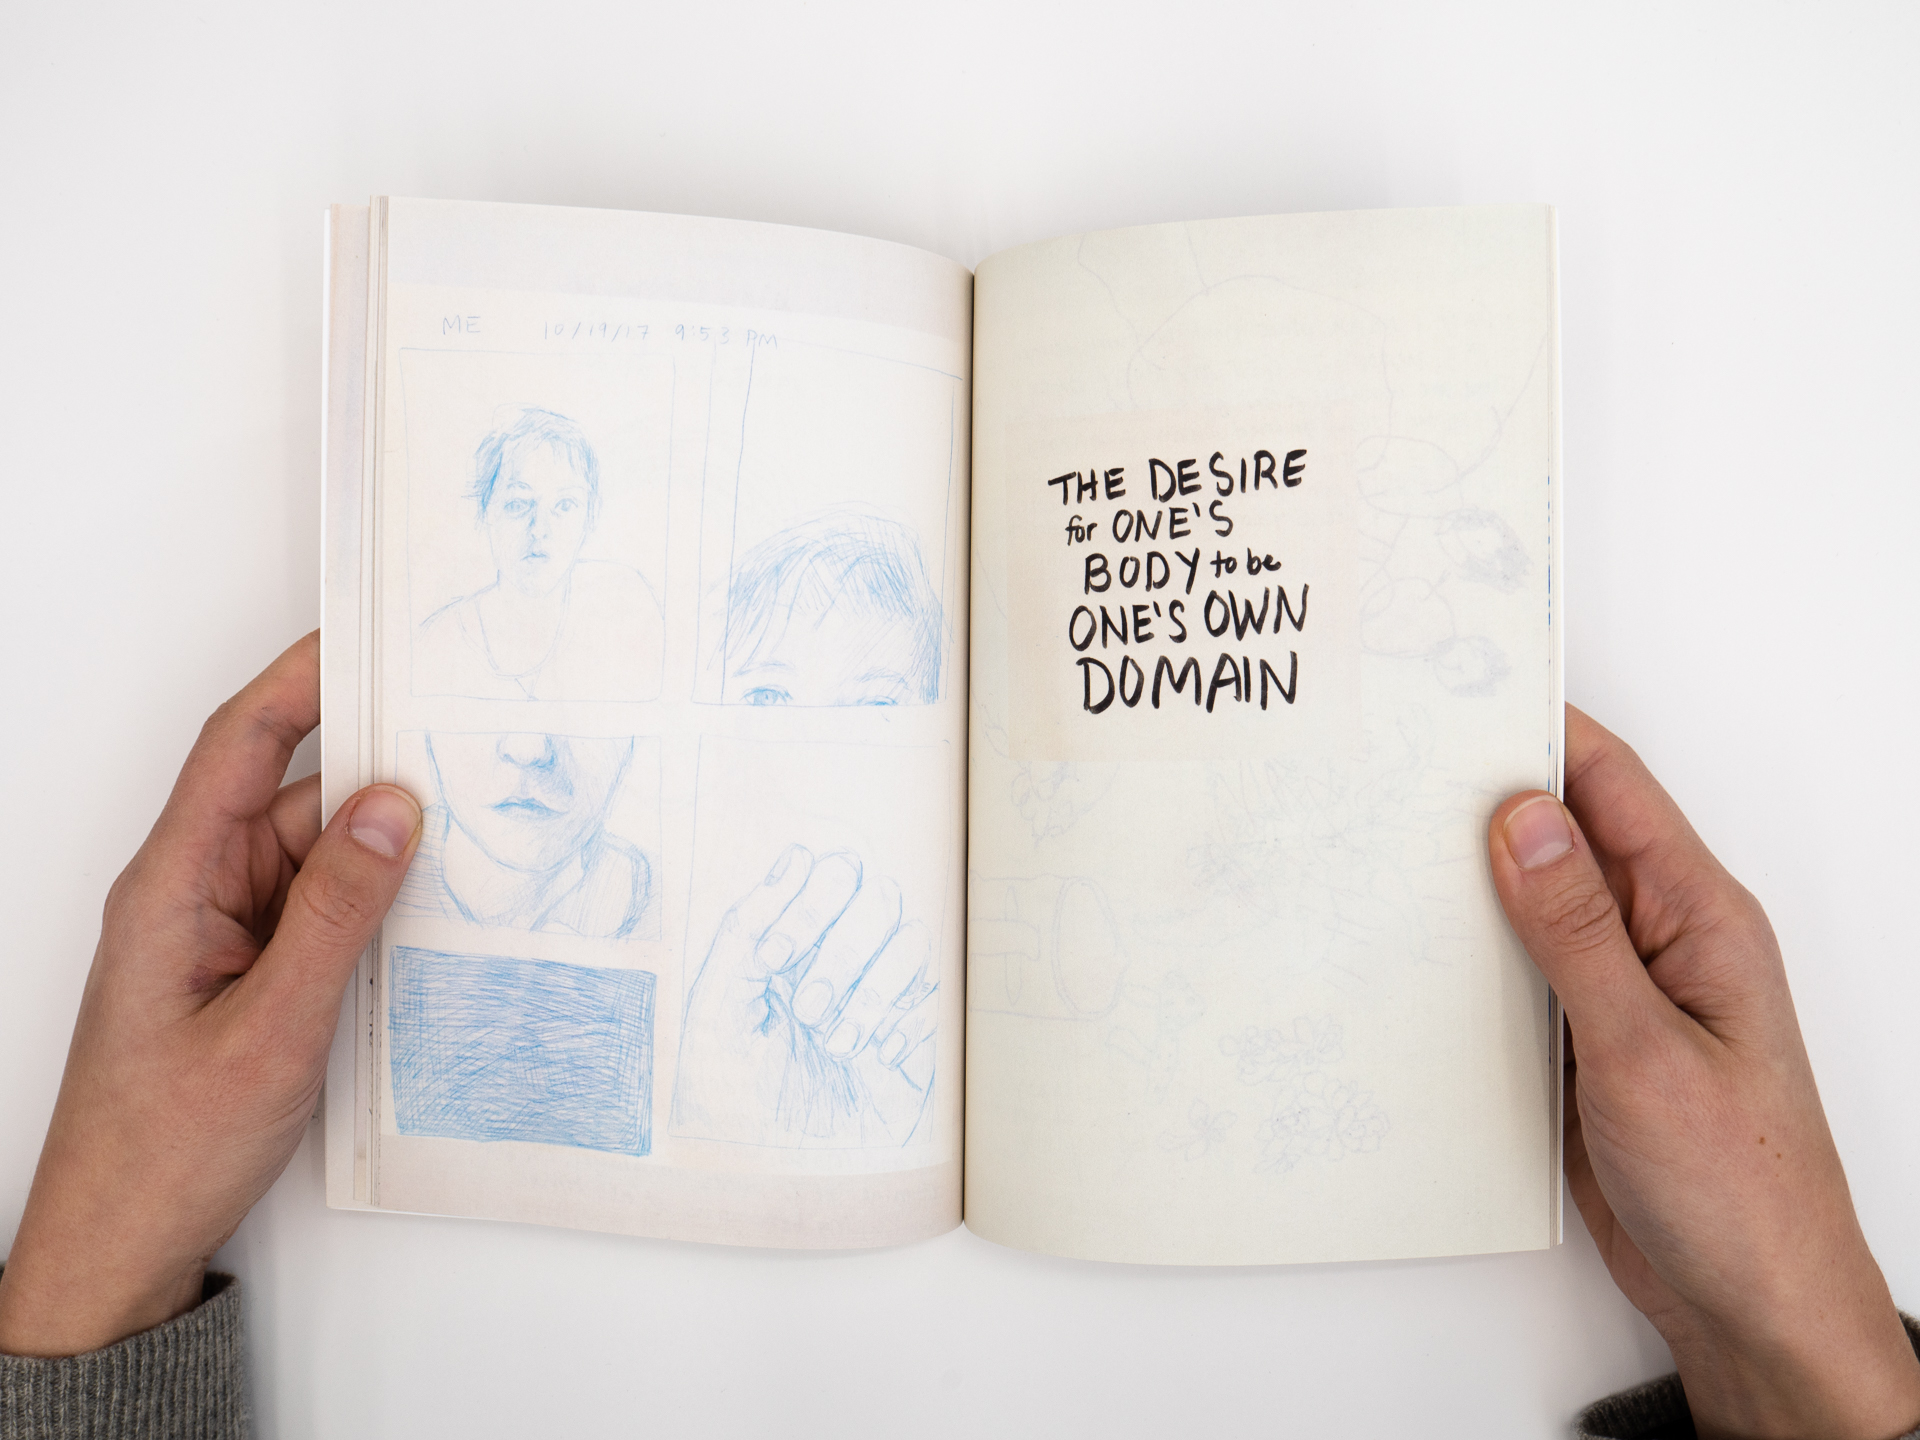 ME 10/19/17 9:53 PM
THE DESIRE
for ONE'S
BODY to be
ONE'S OWN
DOMAIN